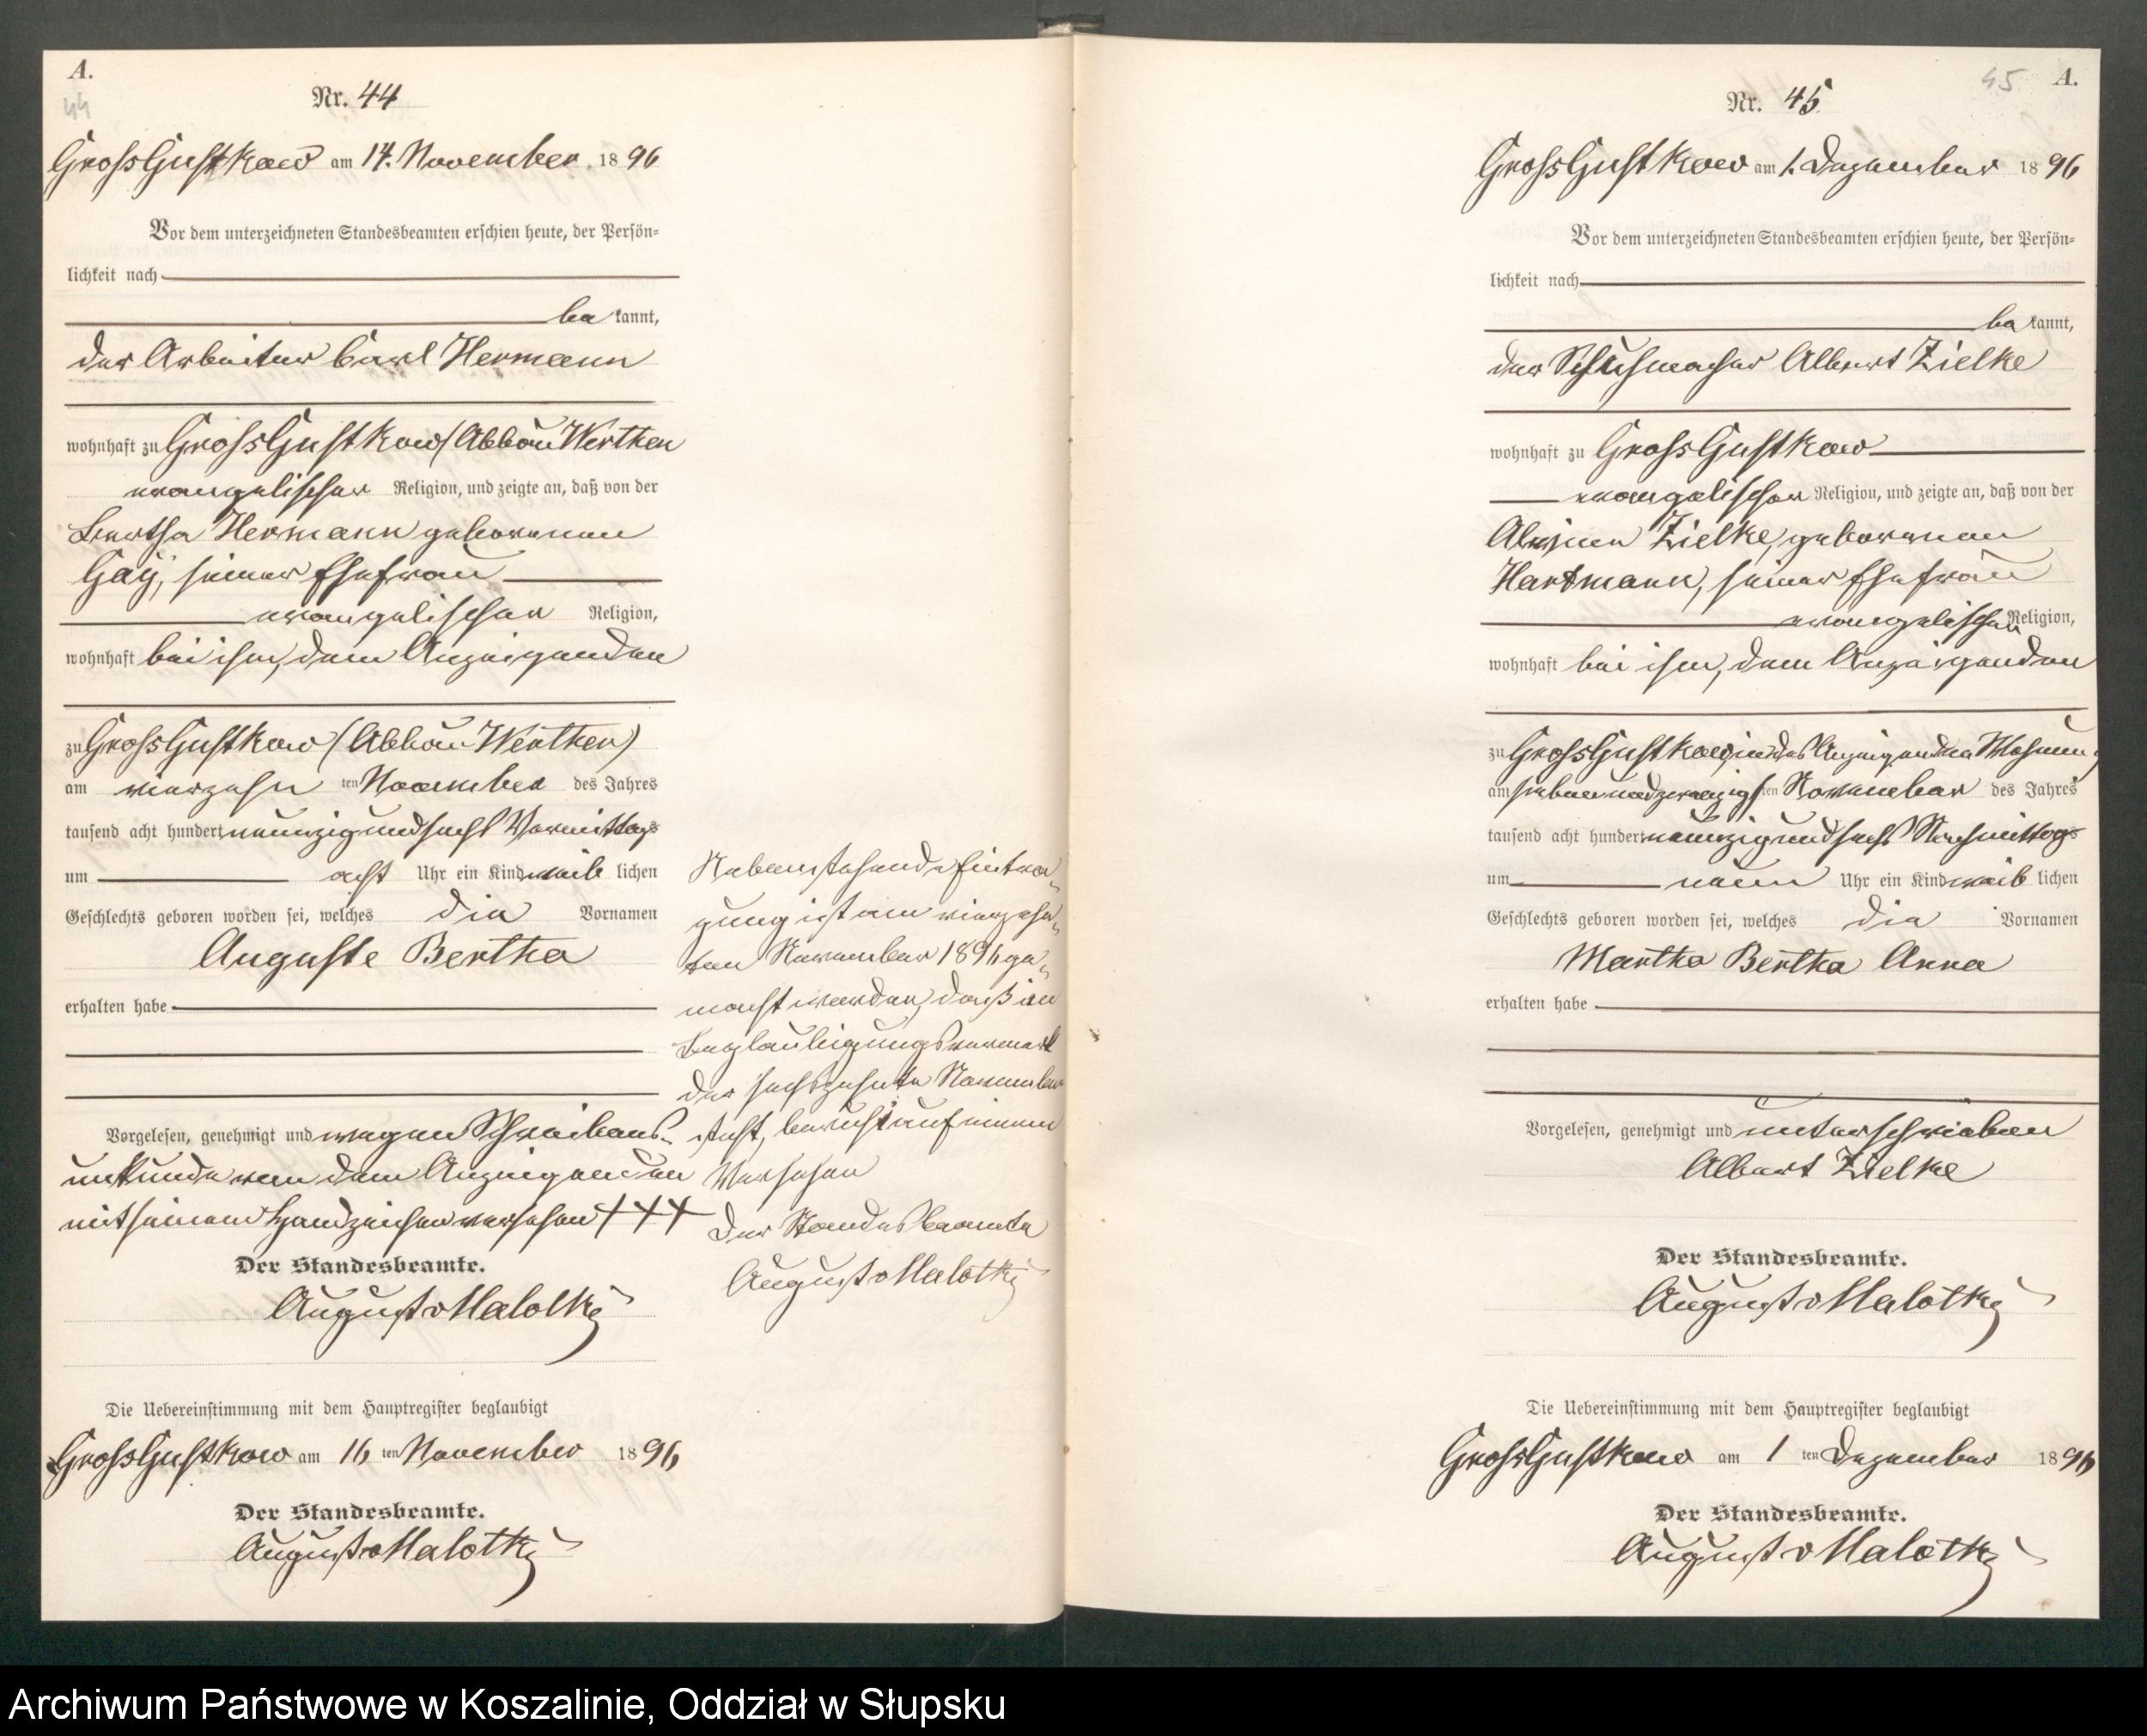 A.
44
Nr. 44
Gross Gustkow am 14. November 1896
Vor dem unterzeichneten Standesbeamten erschien heute, der Persön-
lichkeit nach
be kannt,
der Arbeiter Carl Hermann
wohnhaft zu Gross Gustkow (Abbau Werthen
evangelischer Religion, und zeigte an, daß von der
Bertha Hermann geborenen
Gaÿ, seiner Ehefrau
evangelischer Religion,
wohnhaft bei ihm, dem Anzeigenden
zu Gross Gustkow (Abbau Werthen)
am vierzehn ten November des Jahres
tausend acht hundert neunzig und sechs Vormittags
um acht Uhr ein Kind weib lichen
Geschlechts geboren worden sei, welches die Vornamen
Auguste Bertha
erhalten habe
Vorgelesen, genehmigt und wegen Schreibens-
unkunde von dem Anzeigenden
mit seinem Handzeichen versehen +++
Der Standesbeamte.
August v Malottkÿ
Die Uebereinstimmung mit dem Hauptregister beglaubigt
Gross Gustkow am 16 ten November 1896
Der Standesbeamte.
August v Malottkÿ
Nebenstehende Eintra-
gung ist am vierzehn-
ten November 1896 ge-
macht worden, daß im
Beglaubigungsvermerk
der sechszehnte November
steht, beruht auf einem
Versehen
Der Standesbeamte
August v Malottkÿ
45 A.
Nr. 45
Gross Gustkow am 1. Dezember 1896
Vor dem unterzeichneten Standesbeamten erschien heute, der Persön-
lichkeit nach
be kannt,
der Schuhmacher Albert Zielke
wohnhaft zu Gross Gustkow
evangelischer Religion, und zeigte an, daß von der
Zielke, geborenen
Hartmann, seiner Ehefrau
evangelischer Religion,
wohnhaft bei ihm, dem Anzeigenden
zu Gross Gustkow in des Anzeigenden Wohnung
am siebenundzwanzigsten November des Jahres
tausend acht hundert neunzig und sechs Nachmittags
um neun Uhr ein Kind weib lichen
Geschlechts geboren worden sei, welches die Vornamen
Martha Bertha Anna
erhalten habe
Vorgelesen, genehmigt und unterschrieben
Albert Zielke
Der Standesbeamte.
August v Malottkÿ
Die Uebereinstimmung mit dem Hauptregister beglaubigt
Gross Gustkow am 1 ten Dezember 1896
Der Standesbeamte.
August v Malottkÿ
Archiwum Państwowe w Koszalinie, Oddział w Słupsku